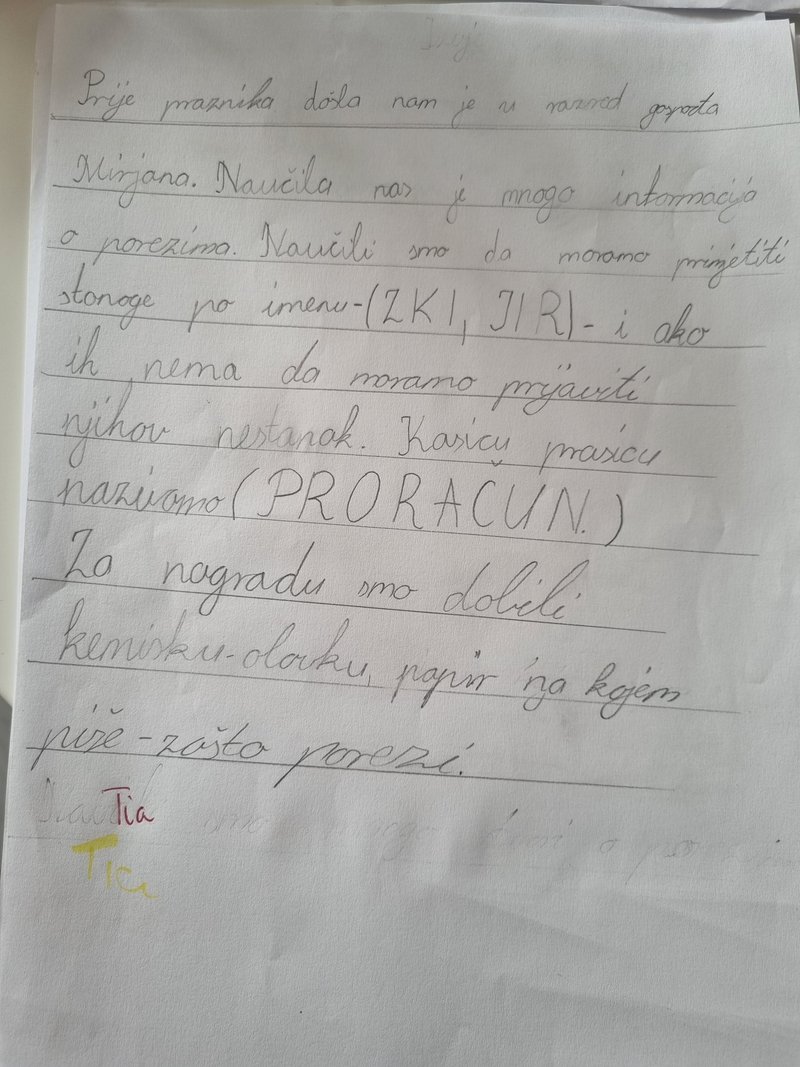 Prije praznika došla nam je u razred gospođa
Mirjana. Naučila nas je mnogo informacija
o porezima. Naučili smo da moramo primjetiti
stonoge po imenu-(ZKI, JIR)- i ako
ih nema da moramo prijaviti
njihov nestanak. Kasicu prasicu
nazivamo (PRORAČUN.)
Za nagradu smo dobili
kemisku-olovku, papir na kojem
piše -zašto porezi.
Tia
Tia